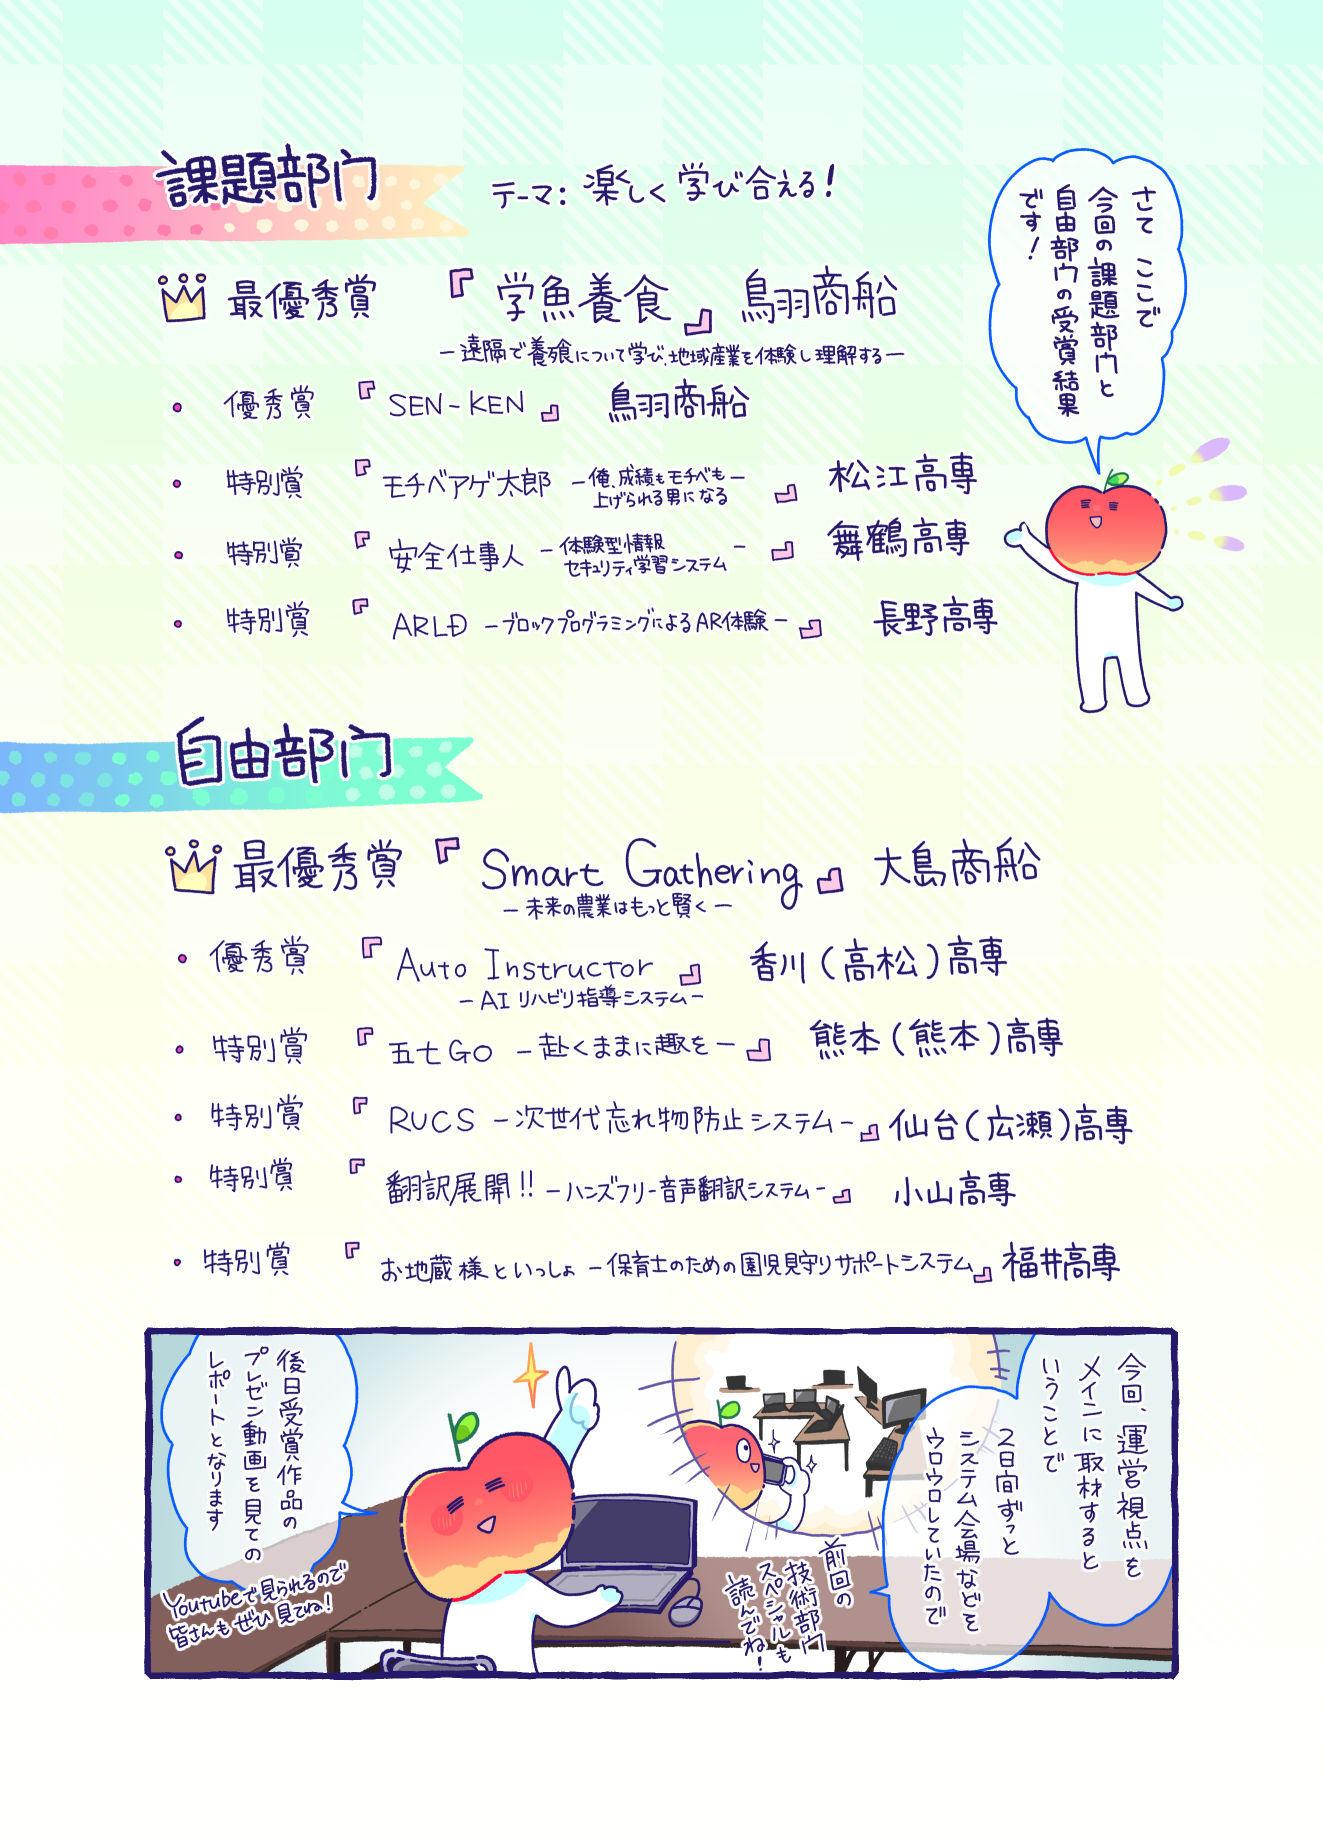 さて ここで
今回の課題部門と
自由部門の受賞結果
です！
課題部門
テーマ：楽しく学び合える！
最優秀賞 『学魚養食』 鳥羽商船
ー遠隔で養殖について学び、地域産業を体験し理解するー
・ 優秀賞 『SEN-KEN』 鳥羽商船
・ 特別賞 『モチベアゲ太郎 ー俺、成績もモチベも
上げられる男になるー』 松江高専
・ 特別賞 『安全仕事人 ー体験型情報
セキュリティ学習システムー』 舞鶴高専
・ 特別賞 『ARLD ーブロックプログラミングによるAR体験ー』 長野高専
自由部門
最優秀賞 『Smart Gathering』 大島商船
ー未来の農業はもっと賢くー
・ 優秀賞 『Auto Instructor』 香川(高松)高専
ーAIリハビリ指導システムー
・ 特別賞 『五七GO ー赴くままに趣をー』 熊本(熊本)高専
・ 特別賞 『RUCS ー次世代忘れ物防止システムー』 仙台(広瀬)高専
・ 特別賞 『翻訳展開!! ーハンズフリー音声翻訳システムー』 小山高専
・ 特別賞 『お地蔵様といっしょ ー保育士のための園児見守りサポートシステム』 福井高専
今回、運営視点を
メインに取材すると
いうことで
2日間ずっと
システム会場などを
ウロウロしていたので
前回の
技術部門
スペシャルも
読んでね！
後日受賞作品の
プレゼン動画を見ての
レポートとなります
Youtubeで見られるので
皆さんもぜひ見てね！